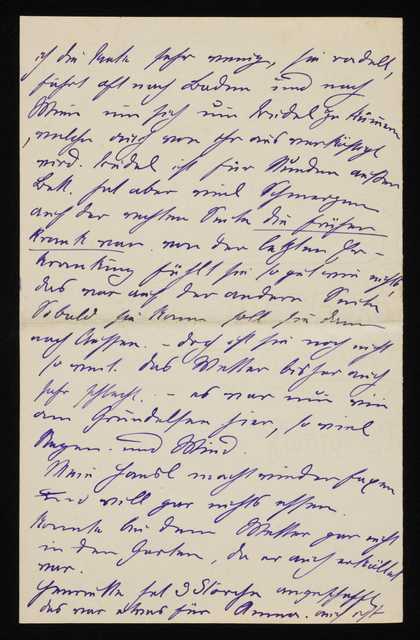 ich die Leute sehr wenig, sie radelt,
fährt oft nach Baden und nach
Wien um sich um Seidel zu kümmern
, welche auch von ihr aus verköstigt
wird. Seidel ist für Stunden außer
Bett. hat aber viel Schmerzen
auf der rechten Seite die früher
krank war. von der letzten Er-
krankung fühlt sie so gut wie nichts,
das war auf der anderen Seite
Sobald sie kann soll sie dann
nach Aussee. – doch ist sie noch nicht
so weit. das Wetter bisher auch
sehr schlecht. – es war nun wie
am Grundlsee hier, so viel
Regen und Wind.
Mein Hansl macht wieder Faxen
und will gar nichts essen.
konnte bei dem Wetter gar nicht
in den Garten, da er auch erkältet
war.
Henriette hat 3 Störche angeschafft
das war etwas für Anna. auch ist